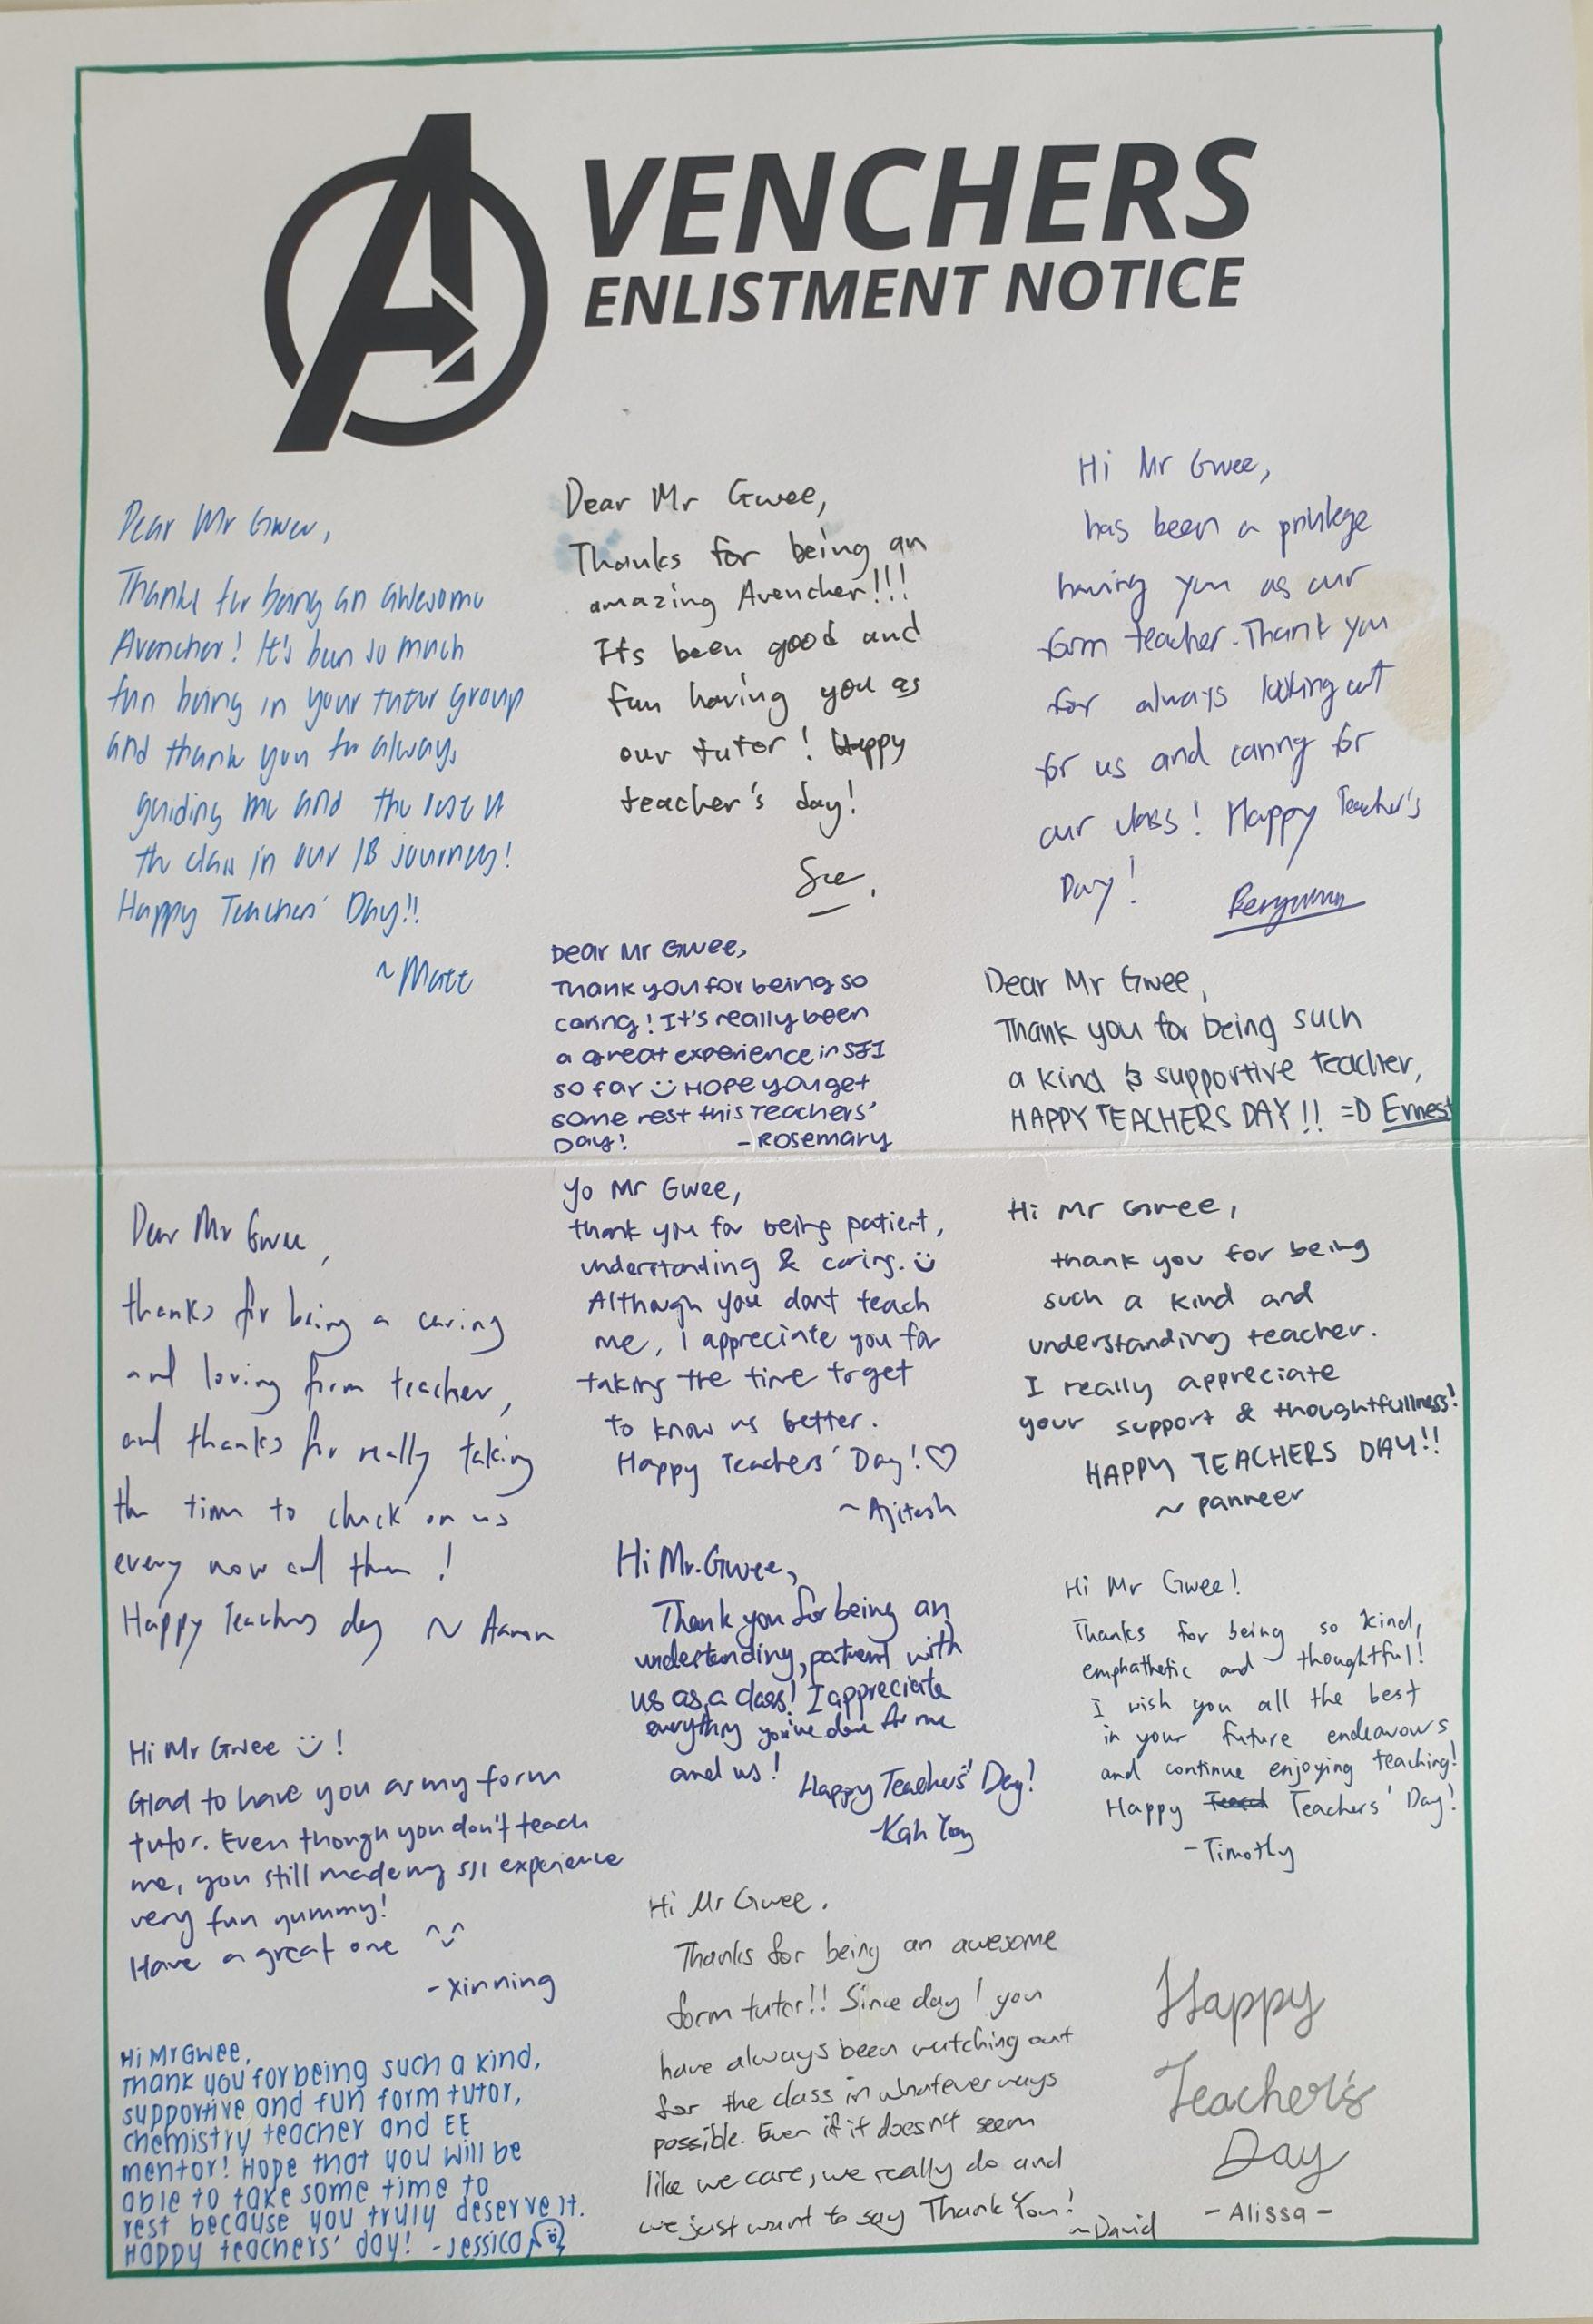 AVENCHERS
ENLISTMENT NOTICE
Dear Mr Gwee,
Thanks for being an awesome
Avencher! It's been so much
fun being in your tutor group
and thank you for always
guiding me and the rest of
the class in our IB journey!
Happy Teachers' Day!!
~Matt
Dear Mr Gwee,
Thanks for being an
amazing Avencher!!!
Its been good and
fun having you as
our tutor! Happy
teacher's day!
Hi Mr Gwee,
has been a privilege
having you as our
form teacher. Thank you
for always looking out
for us and caring for
our class! Happy Teacher's
Day!
Dear Mr Gwee,
Thank you for being so
caring! It's really been
a great experience in SJI
so far :) Hope you get
some rest this Teachers'
Day!
-Rosemary
Dear Mr Gwee,
Thank you for being such
a kind & supportive teacher,
HAPPY TEACHERS DAY!! =D Ernest
Dear Mr Gwee,
thanks for being a caring
and loving form teacher,
and thanks for really taking
the time to check on us
every now and then!
Happy Teachers day ~ Aaron
Yo Mr Gwee,
thank you for being patient,
understanding & caring. :)
Although you dont teach
me, I appreciate you for
taking the time to get
to know us better.
Happy Teachers' Day! ♡
~Ajitesh
Hi Mr Gwee,
thank you for being
such a kind and
understanding teacher.
I really appreciate
your support & thoughtfullness!
HAPPY TEACHERS DAY!!
~ panneer
Hi Mr Gwee :)!
Glad to have you as my form
tutor. Even though you don't teach
me, you still made my SJI experience
very fun yummy!
Have a great one ^-^
-xinning
Hi Mr. Gwee,
Thank you for being an
understanding, patient with
us as a class! I appreciate
everything you've done for me
and us!
Happy Teachers' Day!
-Kah Yong
Hi Mr Gwee!
Thanks for being so kind,
emphathetic and thoughtful!
I wish you all the best
in your future endeavours
and continue enjoying teaching!
Happy Teachers' Day!
-Timothy
Hi Mr Gwee,
Thank you for being such a kind,
supportive and fun form tutor,
chemistry teacher and EE
mentor! Hope that you will be
able to take some time to
rest because you truly deserve it.
Happy teachers' day! -Jessica
Hi Mr Gwee.
Thanks for being an awesome
form tutor!! Since day 1 you
have always been watching out
for the class in whatever ways
possible. Even if it doesn't seem
like we care, we really do and
we just want to say Thank You!
~David
Happy
Teacher's
Day
-Alissa-